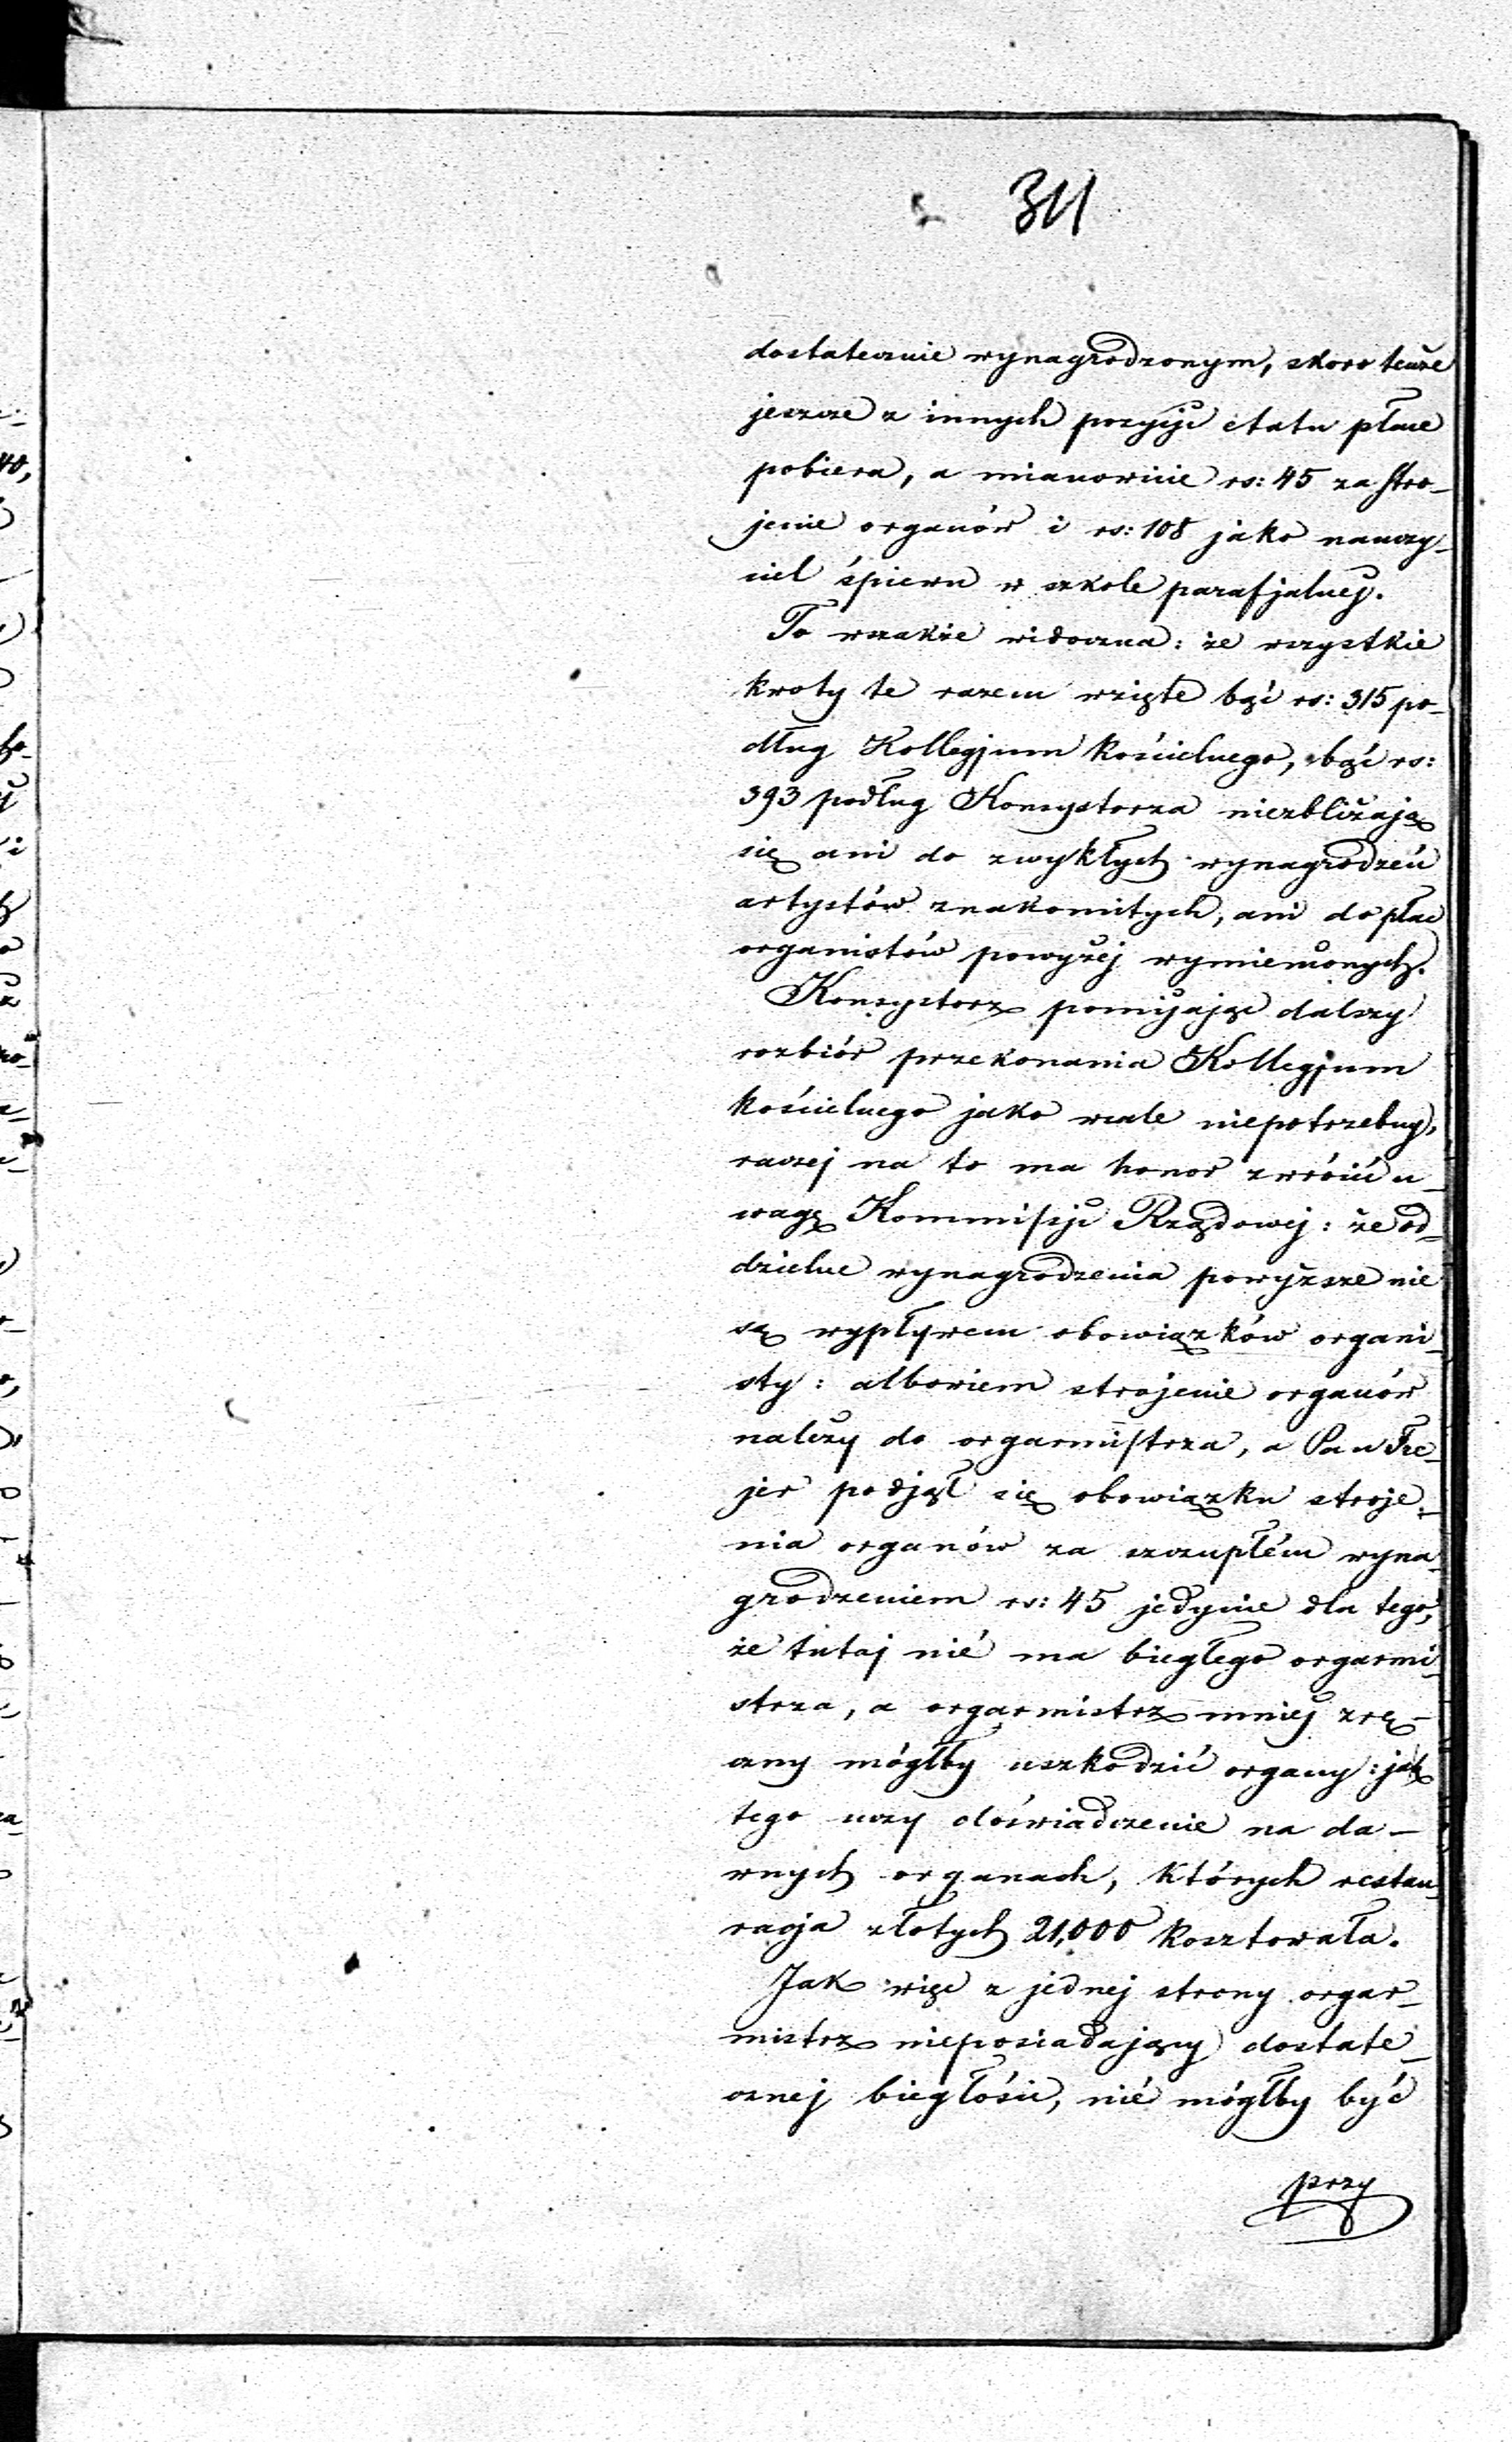 311
dostatecznie wynagrodzonym, skoro tenże
jeszcze z innych pozycji etatu płace
pobiera, a mianowicie rs: 45 za stro-
jenie organów i rs: 108 jako nauczy-
ciel śpiewu w szkole parafjalnej.
To wszakże widoczna: że wszystkie
kwoty te razem wzięte bąć rs: 315 po-
dług Kollegjum kościelnego, bąć rs:
393 podług Konsystorza niezbliżają
się ani do zwykłych wynagrodzeń
artystów znakomitych, ani do płac
organistów powyżej wymienionych.
Konsystorz pomijając dalszy
rozbiór przekonania Kollegjum
kościelnego jako wcale niepotrzebny,
raczej na to ma honor zwrócić u-
wagę Kommisyi Rządowej: że od-
dzielne wynagrodzenia powyższe nie
są wypływem obowiązków organi-
sty: albowiem strojenie organów
należy do orgarmistrza, a Pan Fre-
jer podjął się obowiązku stroje-
nia organów za szczupłém wyna-
grodzeniem rs: 45 jedynie dla tego,
że tutaj nié ma biegłego orgarmi-
strza, a orgarmistrz mniej zrę-
czny mógłby uszkodzić organy: jak
tego uczy doświadczenie na da-
wnych organach, których restau-
racja złotych 21,000 kosztowała.
Jak więc z jednej strony orgar-
mistrz nieposiadający dostate-
cznej biegłości, nié mógłby być
przy